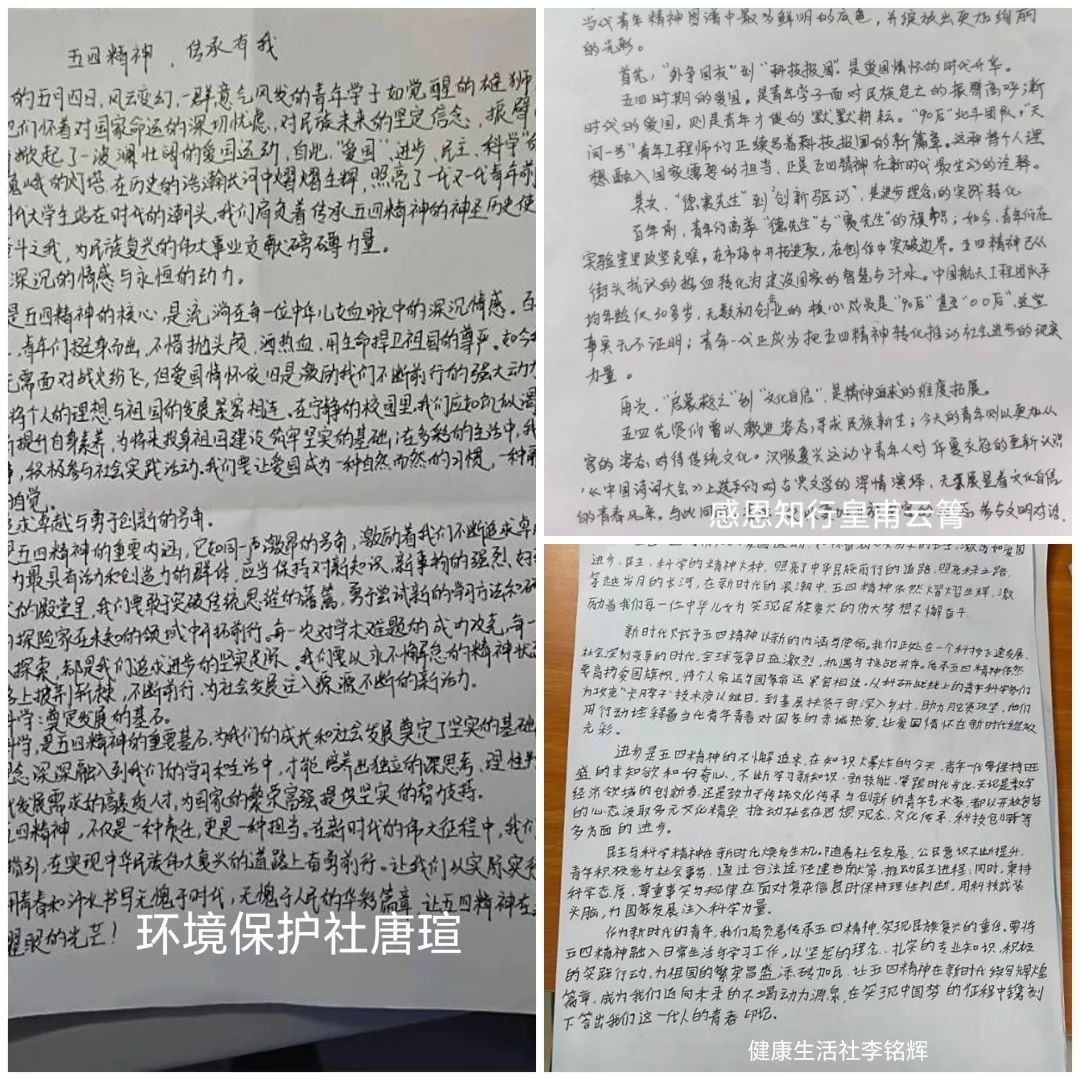 五四精神，传承有我
的五月四日，风云变幻，一群意气风发的青年学子如觉醒的雄狮
们怀着对国家命运的深切忧虑，对民族未来的坚定信念，振臂
掀起了一波澜壮阔的爱国运动，自此，"爱国、进步、民主、科学"
巍峨的灯塔，在历史的浩瀚长河中熠熠生辉，照亮了一代又一代青年前
代大学生站在时代的潮头，我们肩负着传承五四精神的神圣历史使
奋斗之我，为民族复兴的伟大事业贡献磅礴力量。
深沉的情感与永恒的动力。
是五四精神的核心，是流淌在每一位中华儿女血脉中的深沉情感。百
，青年们挺身而出，不惜抛头颅，洒热血，用生命捍卫祖国的尊严。如今
无需面对战火纷飞，但爱国情怀依旧是激励我们不断前行的强大动力
将个人的理想与祖国的发展紧密相连。在宁静的校园里，我们应如饥似渴
提升自身素养，为将来投身祖国建设筑牢坚实的基础；在多彩的生活中，我
，积极参与社会实践活动。我们要让爱国成为一种自然而然的习惯，一种
自觉。
追求卓越与勇于创新的号角。
是五四精神的重要内涵，它如同一声激昂的号角，激励着我们不断追求卓
为最具有活力和创造力的群体，应当保持对新知识、新事物的强烈好
的殿堂里，我们要敢于突破传统思维的藩篱，勇于尝试新的学习方法和研
探险家在未知的领域中开拓前行。每一次对学术难题的成功攻克，每一
探索，都是我们追求进步的坚实足迹。我们要以永不懈怠的精神状态
上披荆斩棘，不断前行，为社会发展注入源源不断的新活力。
科学：奠定发展的基石。
科学，是五四精神的重要基石，为我们的成长和社会发展奠定了坚实的基础
念深深融入到我们的学习和生活中，才能培养出独立的思考、理性
发展需求的高素质人才，为国家的繁荣富强提供坚实的智力支持。
五四精神，不仅是一种责任，更是一种担当。在新时代的伟大征程中，我们
指引，在实现中华民族伟大复兴的道路上奋勇前行。让我们以实际
用青春和汗水书写无愧于时代，无愧于人民的华彩篇章，让五四精神在
耀眼的光芒！
环境保护社唐瑄
当代青年精神图谱中最为鲜明的底色，并绽放出更加绚丽
的光彩。
首先，"外争国权"到"科技报国"是爱国情怀的时代升华。
五四时期的爱国，是青年学子面对民族危亡的振臂高呼；新
时代的爱国，则是青年才俊的默默耕耘。"90后"北斗团队，"天
问一号"青年工程师们正续写着科技报国的新篇章。这种将个人理
想融入国家需要的担当，正是五四精神在新时代最生动的诠释。
其次，"德赛先生"到"创新驱动"，是进步理念的实践转化
百年前，青年们高举"德先生"与"赛先生"的旗帜；如今，青年们在
实验室里攻坚克难，在市场中开拓进取，在创作中突破边界。五四精神已从
街头抗议的热血转化为建设国家的智慧与汗水。中国航天工程团队平
均年龄仅30多岁，无数初创企业的核心成员是"90后"甚至"00后"，这些
事实无不证明：青年一代正成为把五四精神转化推动社会进步的现实
力量。
再次，"启蒙救亡"到"文化自信"，是精神追求的维度拓展。
五四先贤们曾以激进姿态，寻求民族新生；今天的青年则以更加从
容的姿态对待传统文化。汉服复兴运动中青年人对华夏衣冠的重新认识
，《中国诗词大会》上选手们对古典文学的深情演绎，无不展显着文化自信
的青春风采。与此同 参与文明对话，
感恩知行皇甫云箐
进步、民主、科学的精神火种，照亮了中华民族前行的道路，照亮未来之路。
穿越岁月的长河，在新时代的浪潮中，五四精神依然熠熠生辉，激
励着我们每一位中华儿女为实现民族复兴的伟大梦想不懈奋斗。
新时代赋予五四精神以新的内涵与使命。我们正处在一个科技飞速发展、
社会深刻变革的时代，全球竞争日益激烈，机遇与挑战并存。传承五四精神依然
要高扬爱国旗帜，将个人命运与国家命运紧密相连。从科研战线上的青年科学家们
为攻克"卡脖子"技术夜以继日，到基层扶贫干部深入乡村，助力脱贫攻坚，他们
用行动诠释着当代青年青春对国家的赤诚热爱，让爱国情怀在新时代绽放
光彩。
进步是五四精神的不懈追求，在知识爆炸的今天，青年一代要保持旺
盛的求知欲和好奇心，不断学习新知识、新技能，紧跟时代步伐。无论是数字
经济领域的创新者，还是致力于传统文化传承与创新的青年艺术家，都以开放包容
的心态汲取多元文化精华，推动社会在思想观念、文化传承、科技创新等
多方面的进步。
民主与科学精神在新时代焕发生机。随着社会发展，公民意识不断提升。
青年积极参与社会事务，通过合法途径建言献策，推动民主进程；同时，秉持
科学态度，尊重事实与规律，在面对复杂信息时保持理性判断，用科技武装
头脑，为国家发展注入科学力量。
作为新时代的青年，我们肩负着传承五四精神，实现民族复兴的重任。要将
五四精神融入日常生活与学习工作，以坚定的理念、扎实的专业知识、积极
的实践行动，为祖国的繁荣昌盛添砖加瓦，让五四精神在新时代续写辉煌
篇章，成为我们迈向未来的不竭动力源泉，在实现中国梦的征程中镌刻
下答出我们这一代人的青春印记。
健康生活社李铭辉